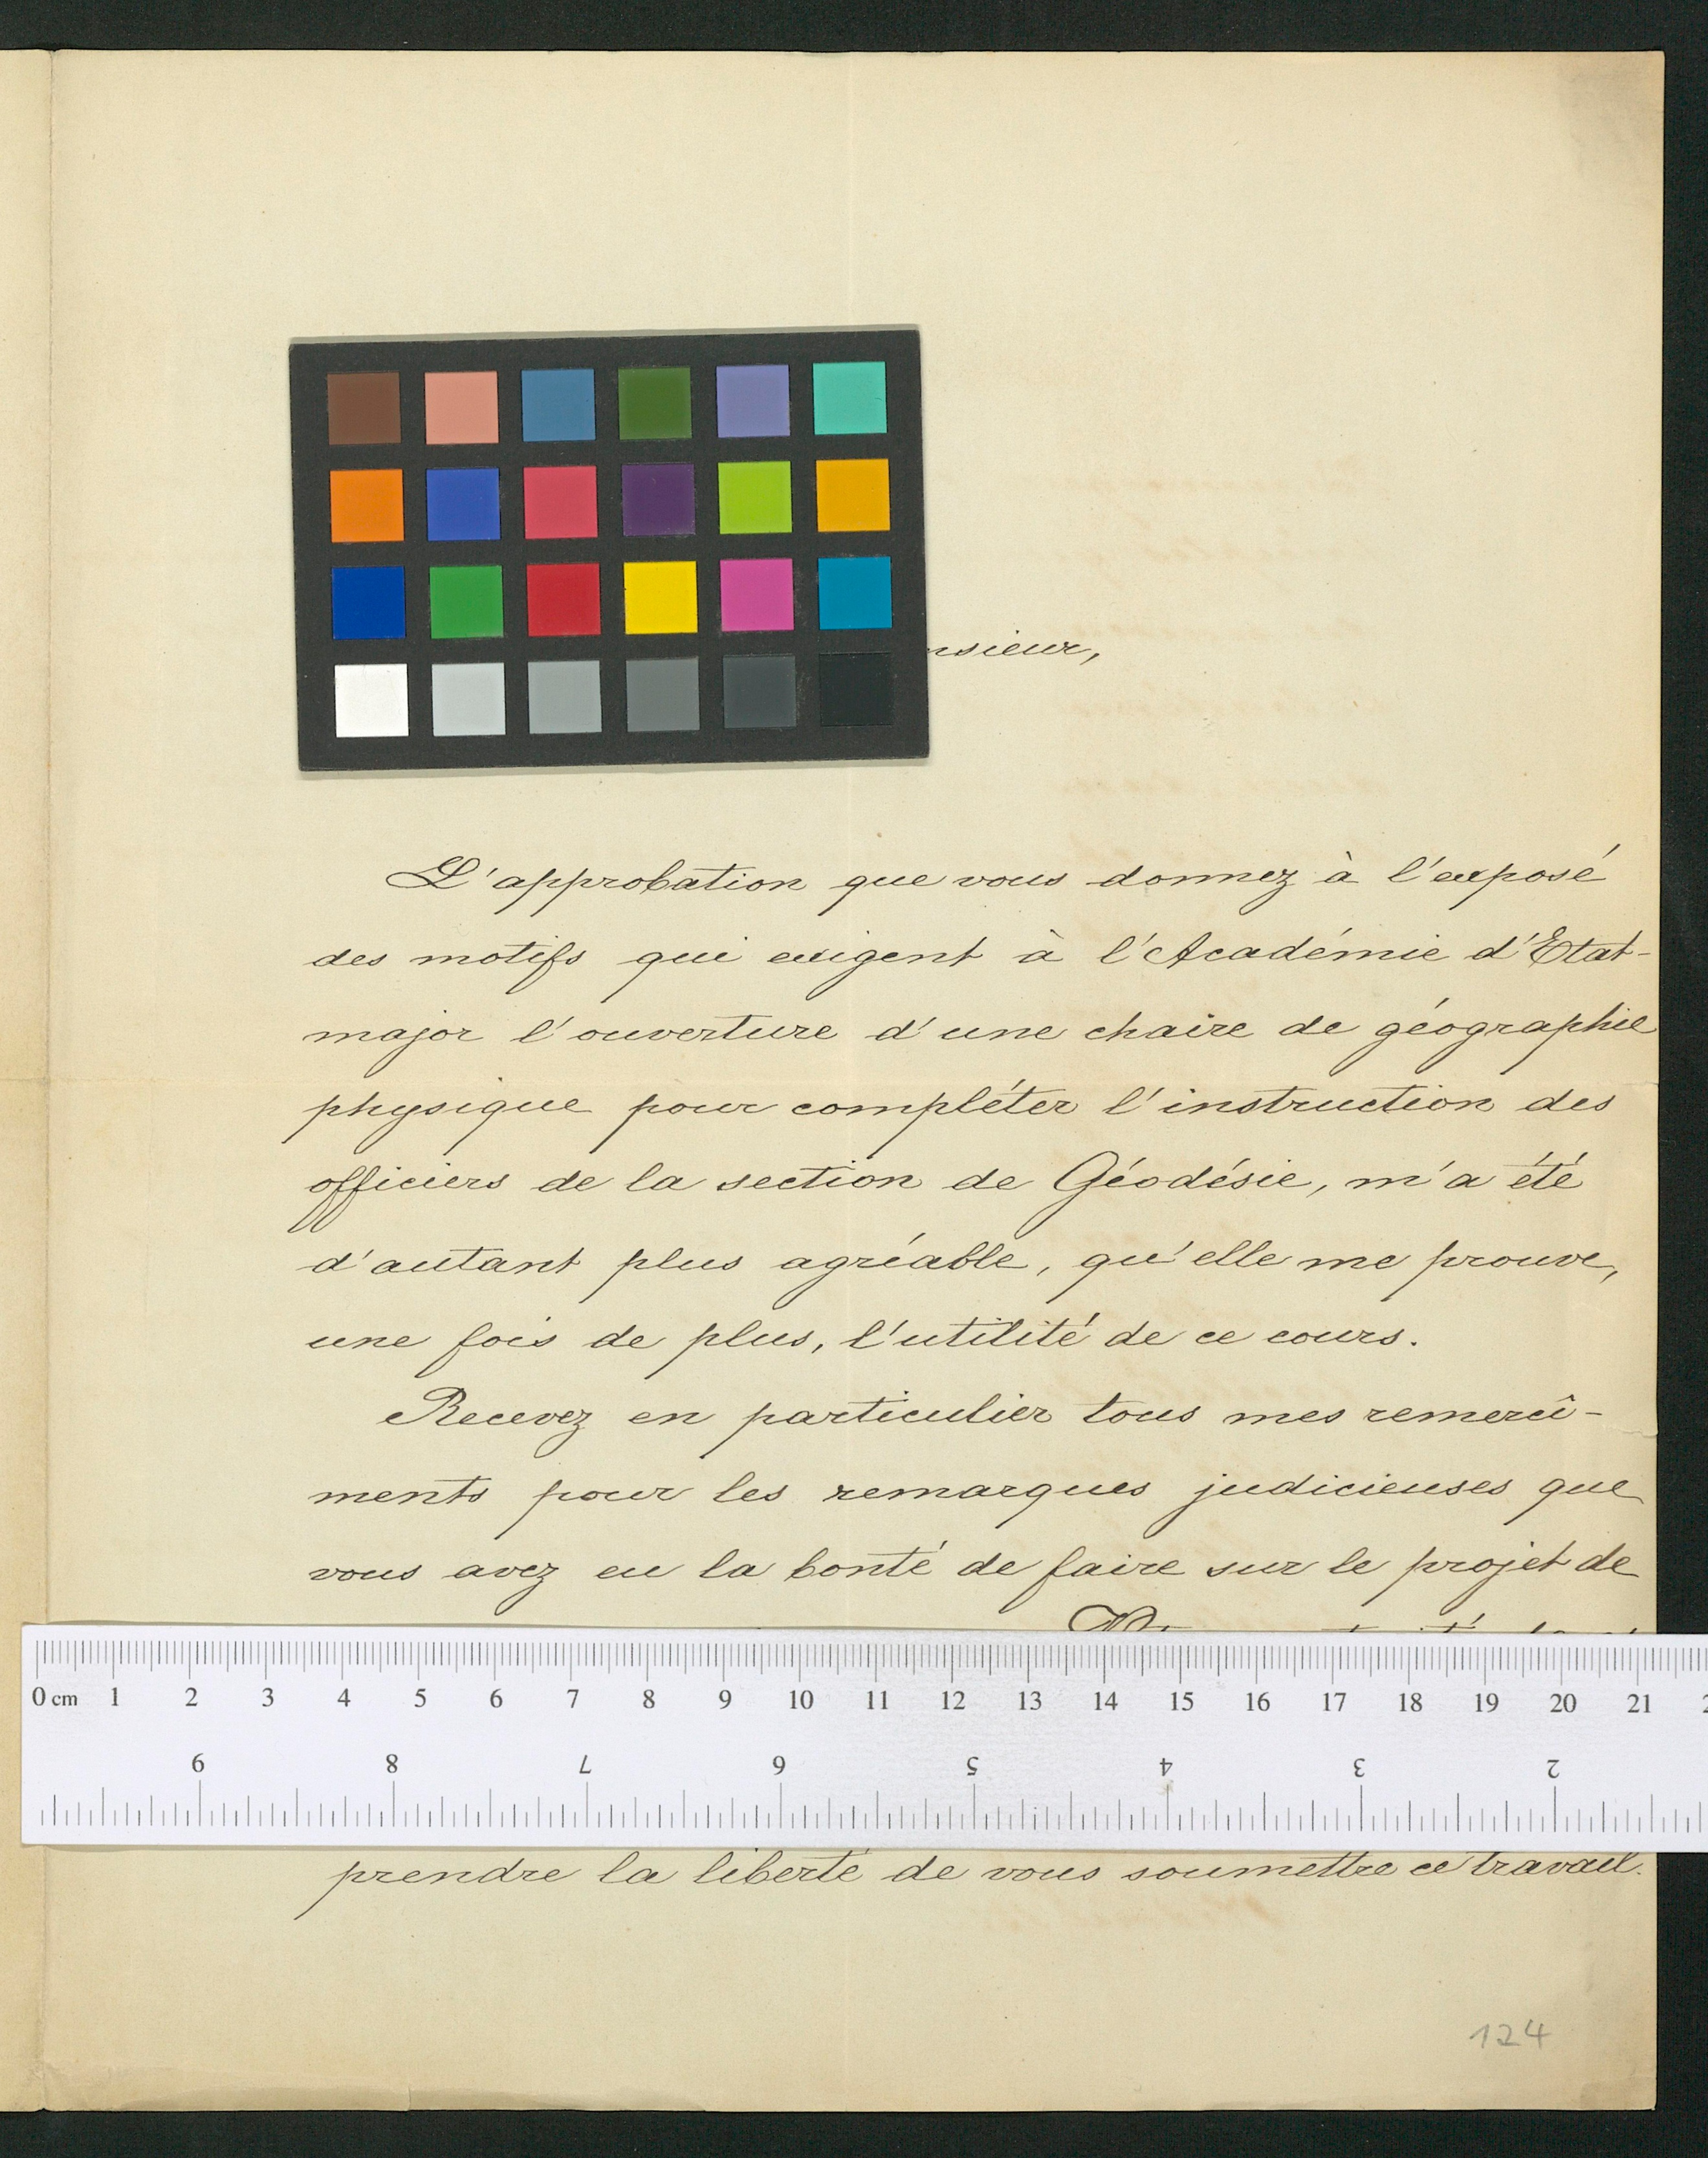 nsieur,
L'approbation que vous donnez à l'exposé
des motifs qui exigent à l'Académie d'Etat-
major l'ouverture d'une chaire de géographie
physique pour compléter l'instruction des
officiers de la section de Géodésie, m'a été
d'autant plus agréable, qu'elle me prouve,
une fois de plus, l'utilité de ce cours.
Recevez en particulier tous mes remercî-
ments pour les remarques judicieuses que
vous avez eu la bonté de faire sur le projet de
0 cm 1 2 3 4 5 6 7 8 9 10 11 12 13 14 15 16 17 18 19 20 21
9 8 7 6 5 4 3 2
prendre la liberté de vous soumettre ce travail.
124